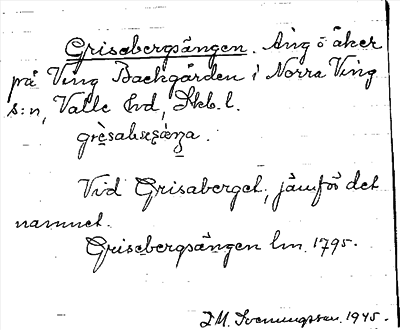 Grisabergsängen. Äng o åker
på Ving Backgården i Norra Ving
s:n, Valle hd, Skb. l.
Vid Grisaberget, jämför det
namnet.
Grisebergsängen lm. 1795.
D.M. Svenungsson 1945.